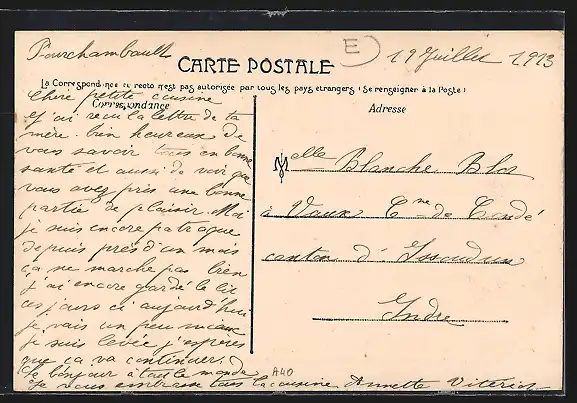 Fourchambault
E
19 Juillet 1913
CARTE POSTALE
La Correspondance au recto n'est pas autorisée par tous les pays étrangers (Se renseigner à la Poste)
Correspondance
Adresse
Chère petite cousine
J'ai recu la lettre de ta
mère. bien heureux de
vous savoir tous en bonne
santé et aussi de voir que
vous avez pris une bonne
partie de plaisir. Moi
je suis encore patraque
depuis près d'un mois
ça ne marche pas bien
J'ai encore gardé le lit
ces jours ci aujourd'hui
je vais un peu mieux
je suis levée j'espères
que ça va continuer.
le bonjour à tout le monde
Je vous embrasse tous la cousine Annette
A40
Melle Blanche
à Vaux Cne de Condé
canton d'Issoudun
Indre